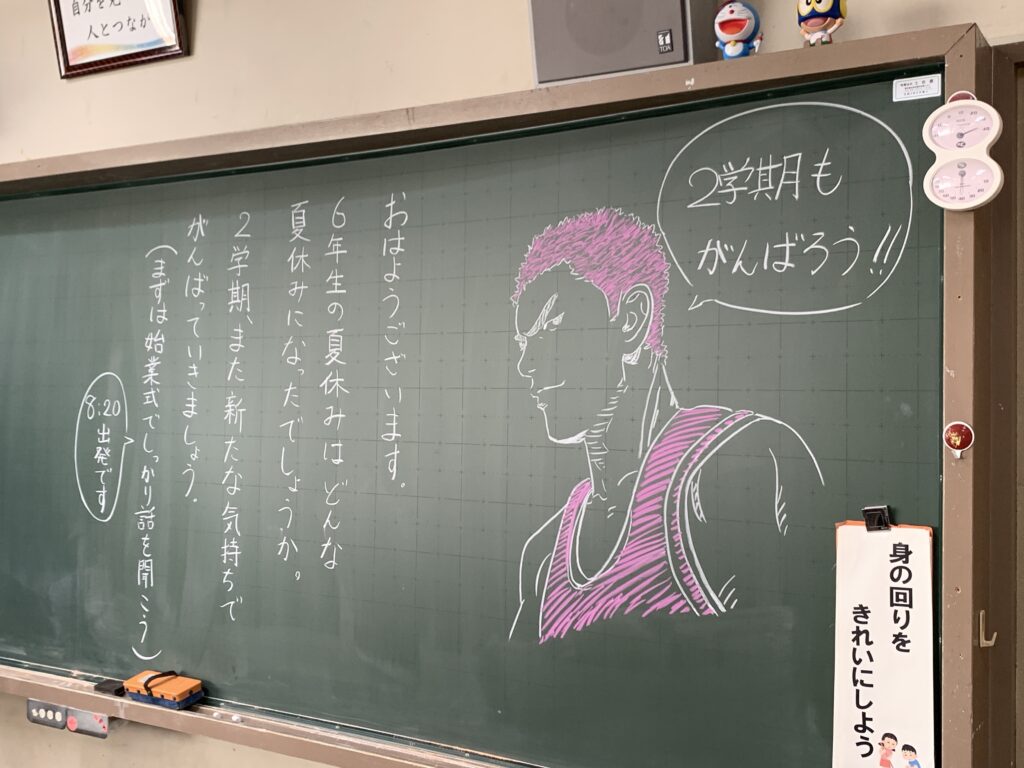 自分を見
人とつなが
TOA
2学期も
がんばろう!!
おはようございます。
6年生の夏休みは どんな
夏休みになったでしょうか。
2学期、また新たな気持ちで
がんばっていきましょう。
(まずは始業式でしっかり話を聞こう)
8:20出発です
身の回りを
きれいにしよう